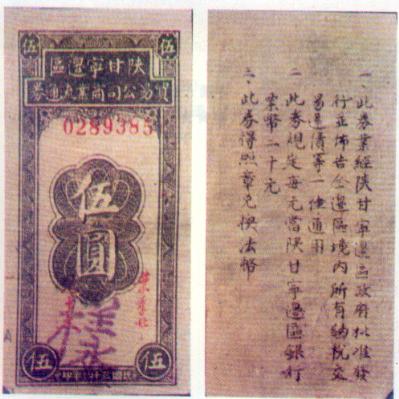 伍 伍
陝甘寧邊區
貿易公司商業流通券
0289385
伍圓
伍 伍
一 此券業經陝甘寧邊區政府批准發
行並佈告全邊區境內所有納稅交
易還債等一律通用
二 此券規定每元當陝甘寧邊區銀行
票幣二十元
三 此券得照章兌換法幣